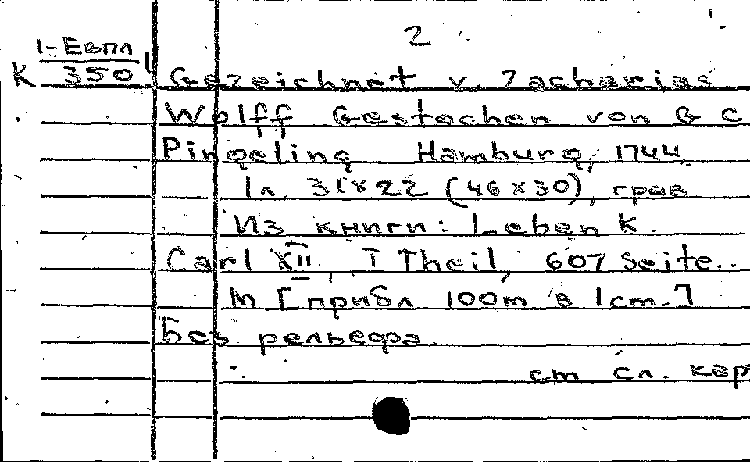 2
К 1-Евпл
350
Gezeichnet v. Zacharias
Wolff Gestochen von G C
Pingeling Hamburg, 1744.
1л. 31x22 (46x30), грав
Из книги: Leben K.
Carl XII, I Theil, 607 Seite..
М [прибл 100m в 1cm.]
Без рельефа.
см сл. кар